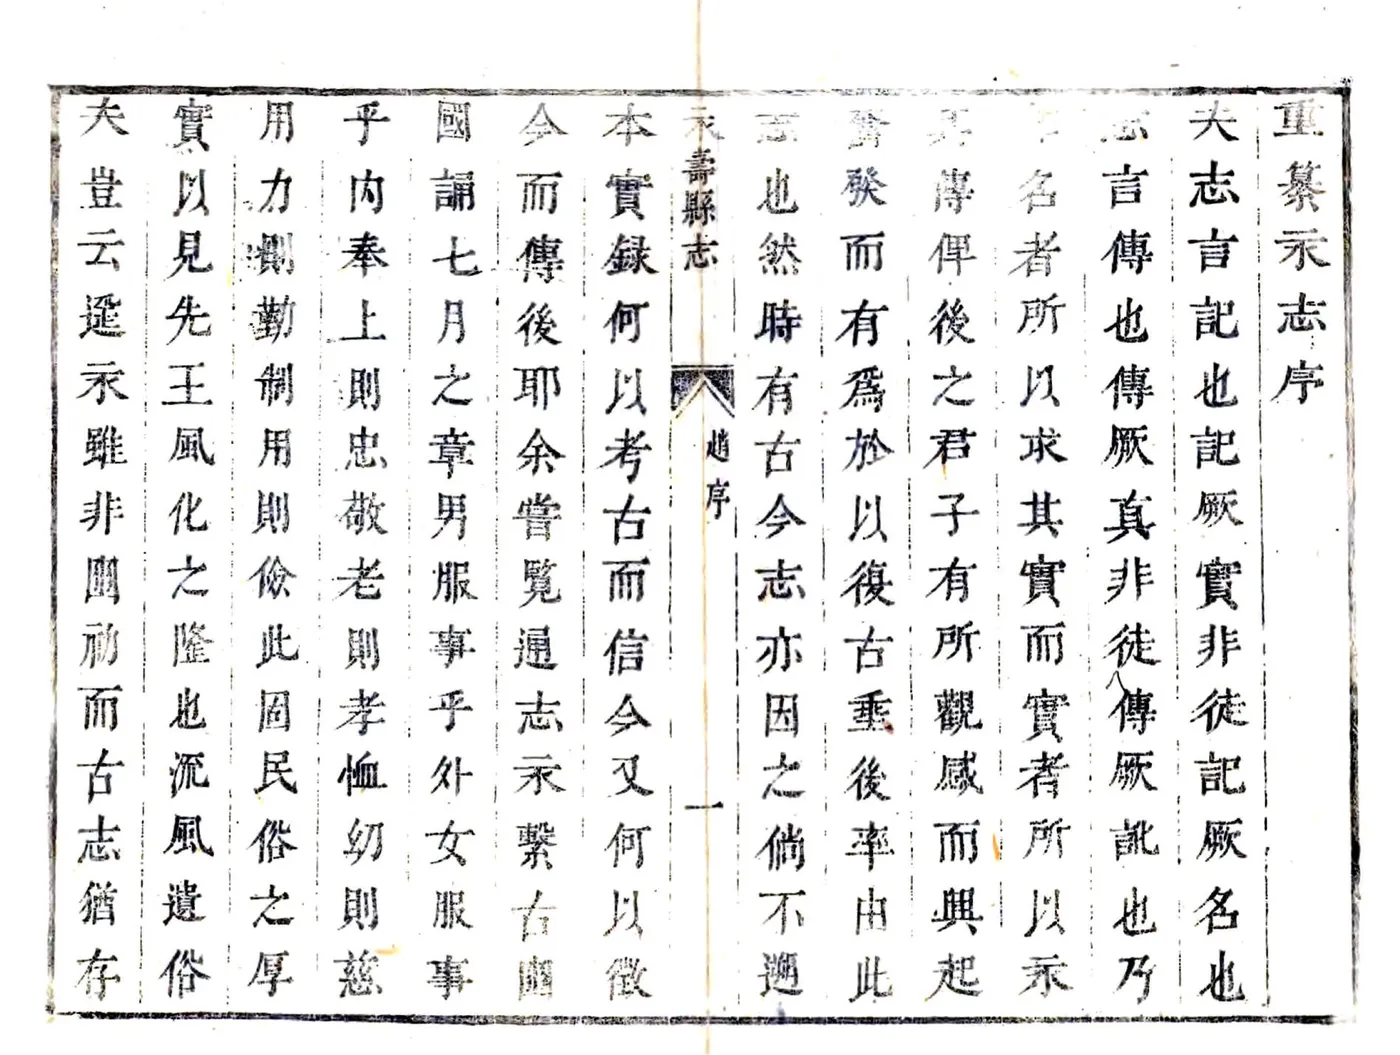 重纂永志序
夫志言記也記厥實非徒記厥名也
志言傳也傳厥真非徒傳厥訛也乃
名者所以求其實而實者所以永
其傳俾後之君子有所觀感而興起
奮發而有爲於以復古垂後率由此
志也然時有古今志亦因之倘不遡
永壽縣志
趙序
一
本實録何以考古而信今又何以徵
今而傳後耶余嘗覽通志永繫古豳
國誦七月之章男服事乎外女服事
乎内奉上則忠敬老則孝恤幼則慈
用力則勤制用則儉此固民俗之厚
實以見先王風化之隆也流風遺俗
夫豈云遥永雖非豳初而古志猶存